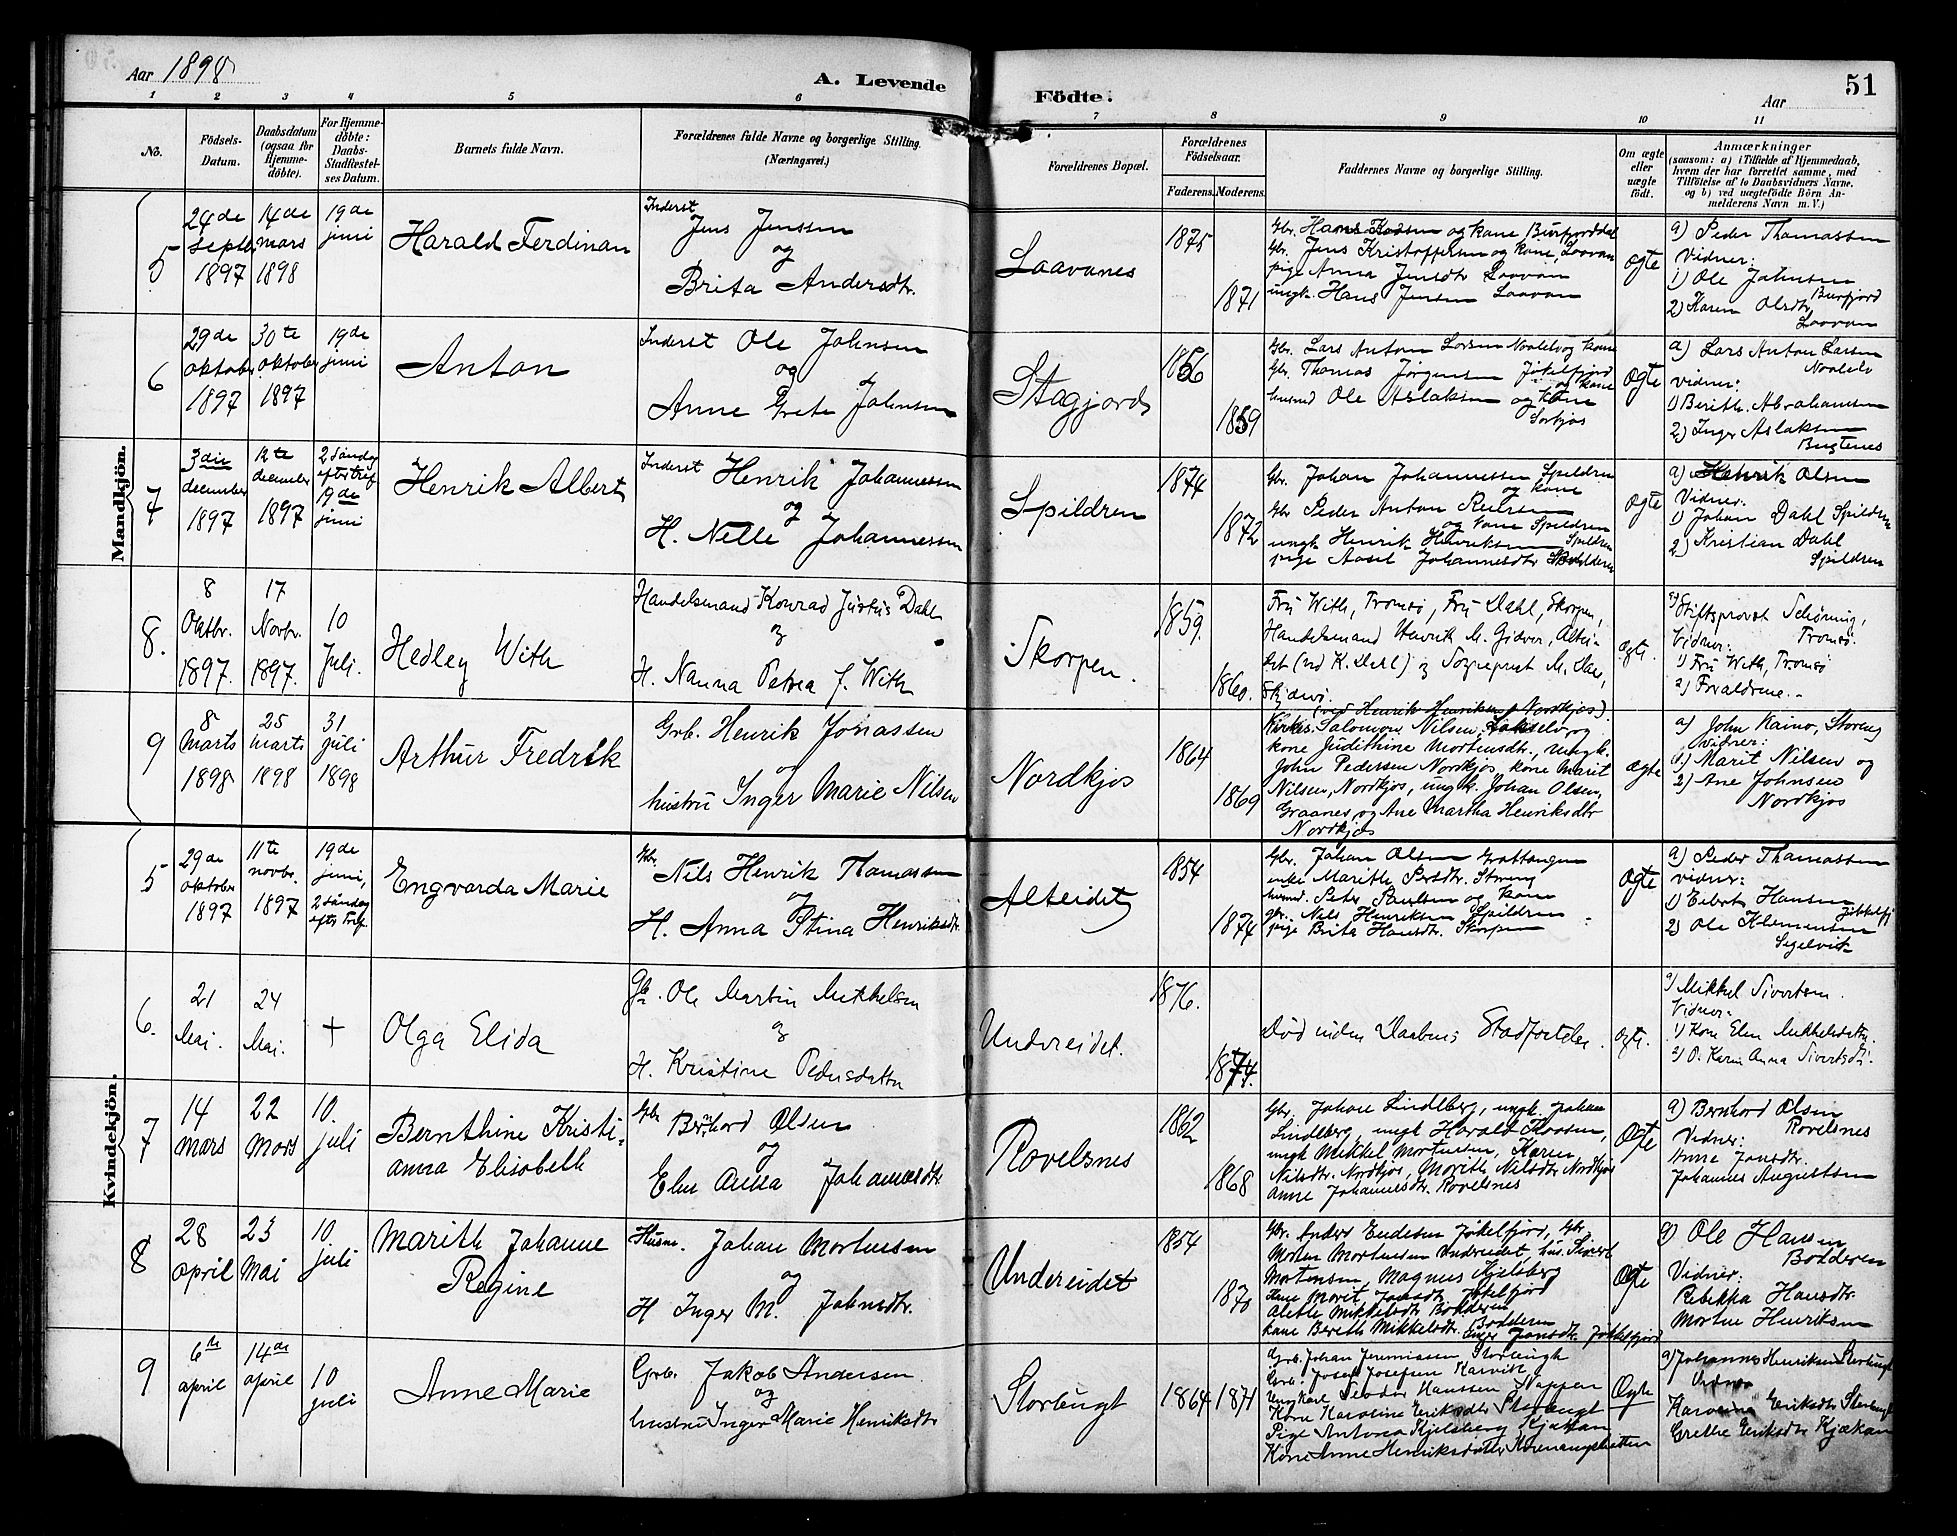 Aar 1898
A. Levende
Födte.
Aar
51
1 2 3 4 5 6 7 8 9 10 11
No.
Födsels-
Datum.
Daabsdatum
(ogsaa for
Hjemme-
döbte).
For Hjemme-
döbte:
Daabs-
Stadfæstel-
ses Datum.
Barnets fulde Navn.
Forældrenes fulde Navne og borgerlige Stilling.
(Næringsvei.)
Forældrenes Bopæl.
Forældrenes
Födselsaar.
Faderens. Moderens.
Faddernes Navne og borgerlige Stilling.
Om ægte
eller
uægte
födt.
Anmærkninger
(saasom: a) i Tilfælde af Hjemmedaab,
hvem der har forrettet samme, med
Tilföielse af to Daabsvidners Navne,
og b) ved uægtefödte Börn An-
melderens Navn m. V.)
Mandkjön.
5
24de
septbr
1897
14de
mars
1898
19de
juni
Harald Ferdinan
Inderst
Jens Jenssen
og
Brita Andersdtr.
Laavanes
1875
1871
Gbr. Hans Koasen og kone Burfjorddal
Gbr. Jens Kristoffersen og kone, Laavan
pige Anna Jensdtr Laavan
ungk. Hans Jensen Laavan
ægte
a) Peder Thomassen
Vidner:
1) Ole Johnsen
Burfjord
2) Karen Olsdtr,
Laavan
6
29de
oktober
1897
30te
oktober
1897
19de
juni
Anton
Inderst Ole Johnsen
og
Anne Grete Johnsen
Stagjords
1856
1859
Gbr. Lars Anton Larsen og kone
Gbr. Thomas Jörgensen Jökelfjord
og kone
husmd Ole Aslaksen og kone
Sorkjos
ægte
a) Lars Anton Larsen
vidner:
1) Berith. Abrahamsen
2) Inger Aslaksen
Bugtenes
7
3die
december
1897
12te
december
1897
2 Söndag
efter tref
19de
juni
Henrik Albert
Inderst Henrik Johannessen
og
H. Nelle Johannessen
Spildren
1874
1872
Gbr. Johan Johannessen Spildren
og kone
Gbr Peder Anton Paulsen
og kone Spildren
ungk Henrik Henriksen Spildren
pige Aasel Johannesdtr
ægte
a) Henrik Olsen
Vidner:
1) Johan Dahl Spildren
2) Kristian Dahl
Spildren
8.
8
Oktbr.
1897.
17
Novbr.
1897.
10
Juli.
Hedley With
Handelsmand Konrad Justus Dahl
og
H. Nanna Petrea f. With
Skorpen.
1859.
1860.
Fru With, Tromsø, Fru Dahl, Skorpen,
Handelsmand Henrik M. Gidver, Altei-
det (ved K. Dahl) og Sogneprest M. Dae,
Skjervø.
ægte.
a) Stiftsprovst Schörning,
Tromsø.
Vidner:
1) Fru With, Tromsø
2) Forældrene.
9
8
Marts
1898
25
marts
1898
31
juli
1898
Arthur Fredrik
Grb. Henrik Jonassen
og
hustru Inger Marie Nilsen
Nordkjos
1864
1869
(ved Henrik Henriksen, Nordkjos).
Kirkes. Salomon Nilsen, Lakselv og
kone Judithine Mortensdtr., Ungk.
John Pedersen Nordkjos, kone Marit
Nilsen, Nordkjos, ungk. Johan Olsen,
Graanes, og Ane Martha Henriksdtr
Nordkjos
ægte
a) John Kaino, Storeng
vidner:
1) Marit Nilsen og
2) Ane Johnsen
Nordkjos
Kvindekjön.
5
29de
oktober
1897
11te
novbr.
1897
19de
juni,
2 söndag
efter Tref.
Engvarda Marie
Gbr.
Nils Henrik Thomassen
og
H. Anna Stina Henriksdtr.
Alteidet
1854
1874
Gbr. Johan Olsen Grattangen
enke Marith Persdtr. Storeng
husmd. Peter Paulsen og kone
gbr. Nils Henriksen Spildren
pige Brita Hansdtr. Skorpen
ægte
a) Peder Thomassen
vidner:
1) Eibert Hansen
Jökkelfj
2) Ole Klemensen
Segelvik
6.
21
Mai.
24
Mai.
+
Olga Elida
Gbr. Ole Martin Mikkelsen
og
H. Kristine Pedersdatter
Undereidet.
1876.
1874.
Död uden Daabens Stadfæstelse.
ægte.
a) Mikkel Sivertsen.
Vidner.
1) Kone Elen Mikkelsdatter
2) P. Karen Anna Sivertsdtr.
7
14
mars
22
Mars
10.
juli
Bernthine Kristi-
anna Elisabeth
Gbr Bernhard Olsen
og
Elen Anna Johannesdtr
Rovelsnes
1862
1868
Gbr. Johan Lindberg, ungk. Johan
Lindberg, ungk Harald Kaasen,
ungk Mikkel Mortensen, Karen
Nilsdtr. Nordkjos, Marith Nilsdtr Nordkjos
Anne Johannesdtr. Rovelsnes
ægte
a) Bernhard Olsen
Rovelsnes
Vidner:
Anne Jonsdtr.
Johannes Augustsen
8
28
april
23
mai
10
juli
Marith Johanne
Regine
Husm. Johan Mortensen
og
H Inger M. Johnsdtr.
Undereidet
1854
1870
Gbr. Anders Endresen Jökelfjord, Gbr.
Morten Mortensen Undereidet, hus. Sivert
Mortensen, Magnus Kjelsberg
kone Marit Jonsdtr Jökelfjord
Alette Mikkelsdtr Badderen
kone Bereth Mikkelsdtr. Badderen
Inger Jonsdtr. Jökkelfjord
ægte
a) Ole Hansen
Badderen
Vidner:
Rebekka Hansdtr.
Morten Henriksen
9
6te
april
14de
april
10
juli
Anne Marie
Grb. Jakob Andersen
og
hustru Inger Marie Henriksdtr
Storbugt
1864
1871
Grb. Johan Jeremiassen Storbugt
Grb. Josef Josefsen Karvik
Ungkarl Teodor Hanssen Nappen
Kone Karoline Eriksdtr Storbugt
Pige Antona Kjelsberg Kjækan
Kone Anne Henriksdatter Kvænangsbotten
Ægte
a) Johannes Henriksen Storbugt
Vidner
Eriksdtr Storbugt
Grethe Eriksdtr Kjækan